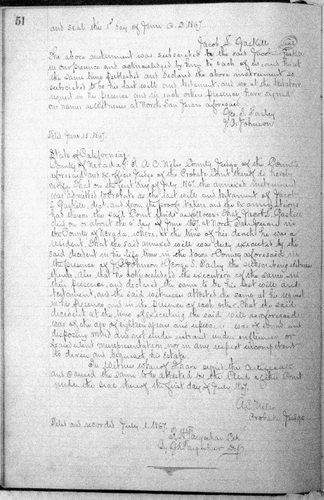 51
and seal the 1st day of June A.D. 1867.
Jacob S. Gaskill
The above instrument was subscribed by the said Jacob Gaskill
in our presence and acknowledged by him to each of us and that
the same time published and declared the above instrument so
subscribed to be his last will and testament, and we at the testators
request in his presence and in each other presence have signed
our names as witnesses at North San Juan aforesaid.
Geo. S. Farley
J. S. Johnson
Filed June 18, 1867.
State of California
County of Nevada I A. C. Niles County Judge of the County
aforesaid and ex officio Judge of the Probate Court thereof do hereby
certify that on the first day of July 1867, the annexed instrument
was admitted to Probate as the last will and testament of Jacob
S. Gaskill, decd, and from the proofs taken and the examinations
had therein the said Court finds as follows: That Jacob S. Gaskill
died on or about the day of June 1867 at North San Juan in
the County of Nevada, where at the time of his death he was a
resident. That the said annexed will was duly executed by the
said decedent in his life time in the town & County aforesaid in
the presence of J. S. Johnson & George S. Farley the subscribing witnesses
thereto. Also that he acknowledged the execution of the same in
their presence, and declared the same to be his last will and
testament, and the said witnesses attested the same at his request
in his presence and in the presence of each other. That the said
decedent at the time of executing the said will as aforesaid
was of the age of eighteen years and upwards was of sound and
disposing mind and not under restraint under influence or
fraudulent misrepresentation, nor in any respect incompetent
to devise and bequeath his estate.
In Witness Whereof I have signed this Certificate
and caused the same to be attested by the Clerk of the Court
under the seal thereof the first day of July 1867.
A. C. Niles
Probate Judge
Filed and recorded July 1, 1867.